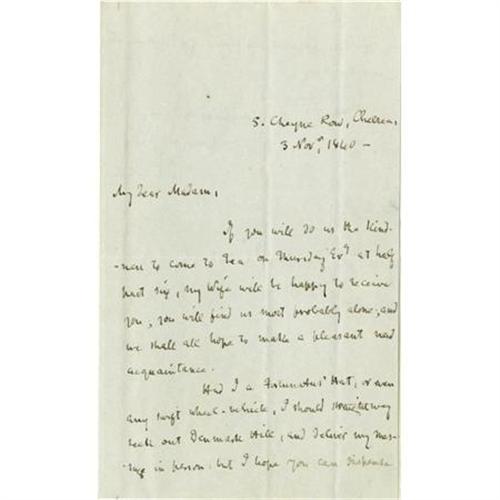 5. Cheyne Row, Chelsea,
3 Novr, 1840 –
My dear Madam,
If you will do us the kind-
-ness to come to Tea on Thursday Evg at half
past six, my Wife will be happy to receive
you; you will find us most probably alone; and
we shall all hope to make a pleasant new
acquaintance.
Had I a Fortunatus' Hat, or even
any swift wheel-vehicle, I should straightway
seek out Denmark Hill, and deliver my mes-
-sage in person: but I hope you can dispense